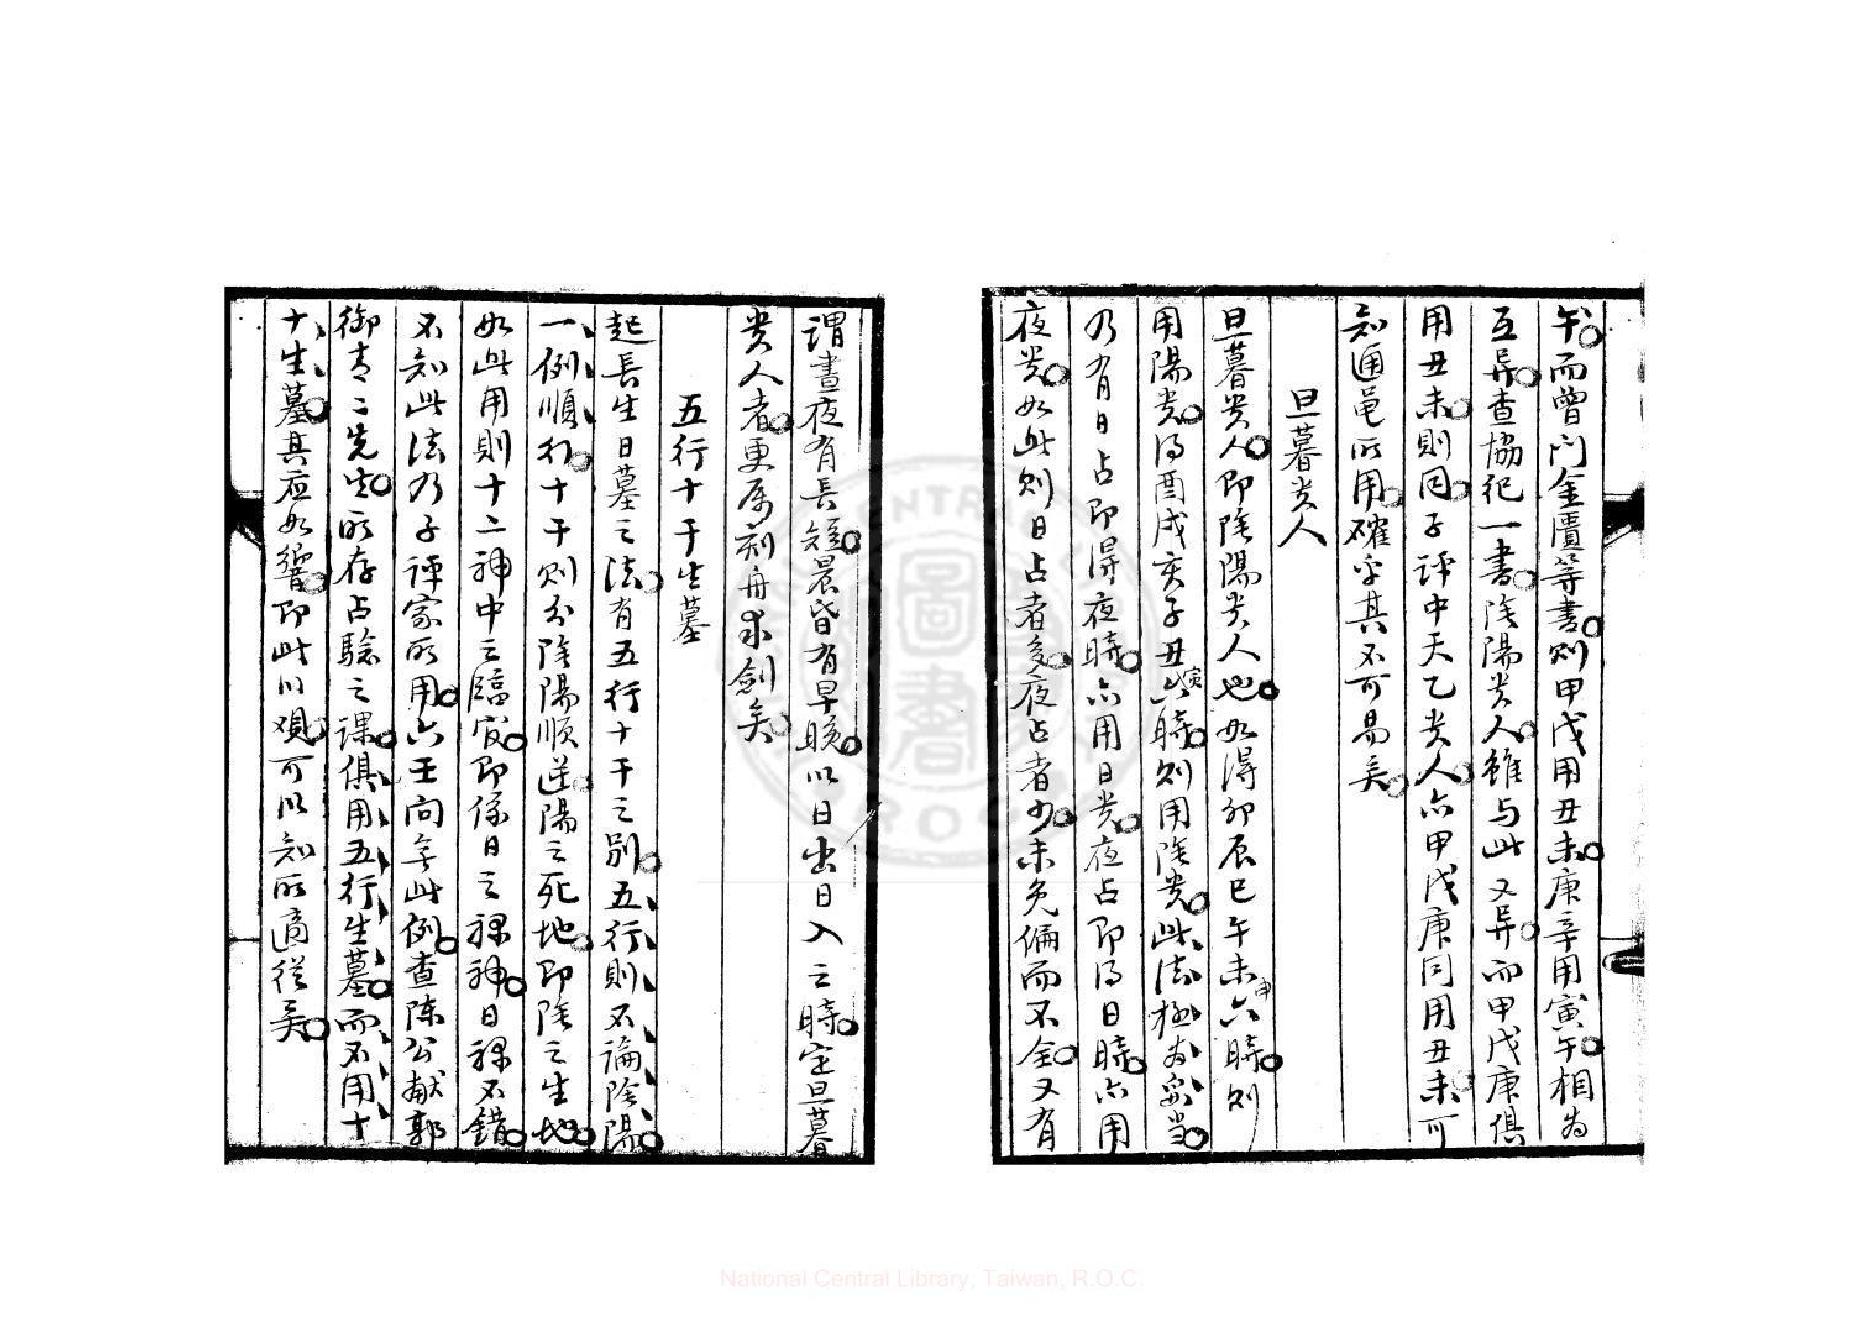 午而曾门金匱等書则甲戊用丑未庚辛用寅午相为
互异查協纪一書陰陽贵人雖与此又异而甲戊庚俱
用丑未則同子評中天乙贵人亦甲戊庚同用丑未可
知通邑所用確乎其不可易矣
旦暮贵人
旦暮贵人即陰陽贵人也如得卯辰巳午未申六時则
用陽贵得酉戌亥子丑寅六時则用陰贵此法極为允当
乃有日占即得夜時亦用日贵夜占即得日時亦用
夜贵如此则日占者多夜占者少未免偏而不全又有
謂晝夜有長短晨昏有早晚以日出日入之時定旦暮
贵人者更属刻舟求劍矣
五行十干生墓
起長生日墓之法有五行十干之别五行則不論陰陽
一例順行十干则分陰陽順逆陽之死地即陰之生地
如此用則十二神中之臨官即係日之祿神日祿不錯
不知此法乃子評家所用六壬向無此例查陈公献郭
御青二先生所存占驗之課俱用五行生墓而不用十
干生墓其应如響即此以观可以知所適從矣
National Central Library, Taiwan, R.O.C.